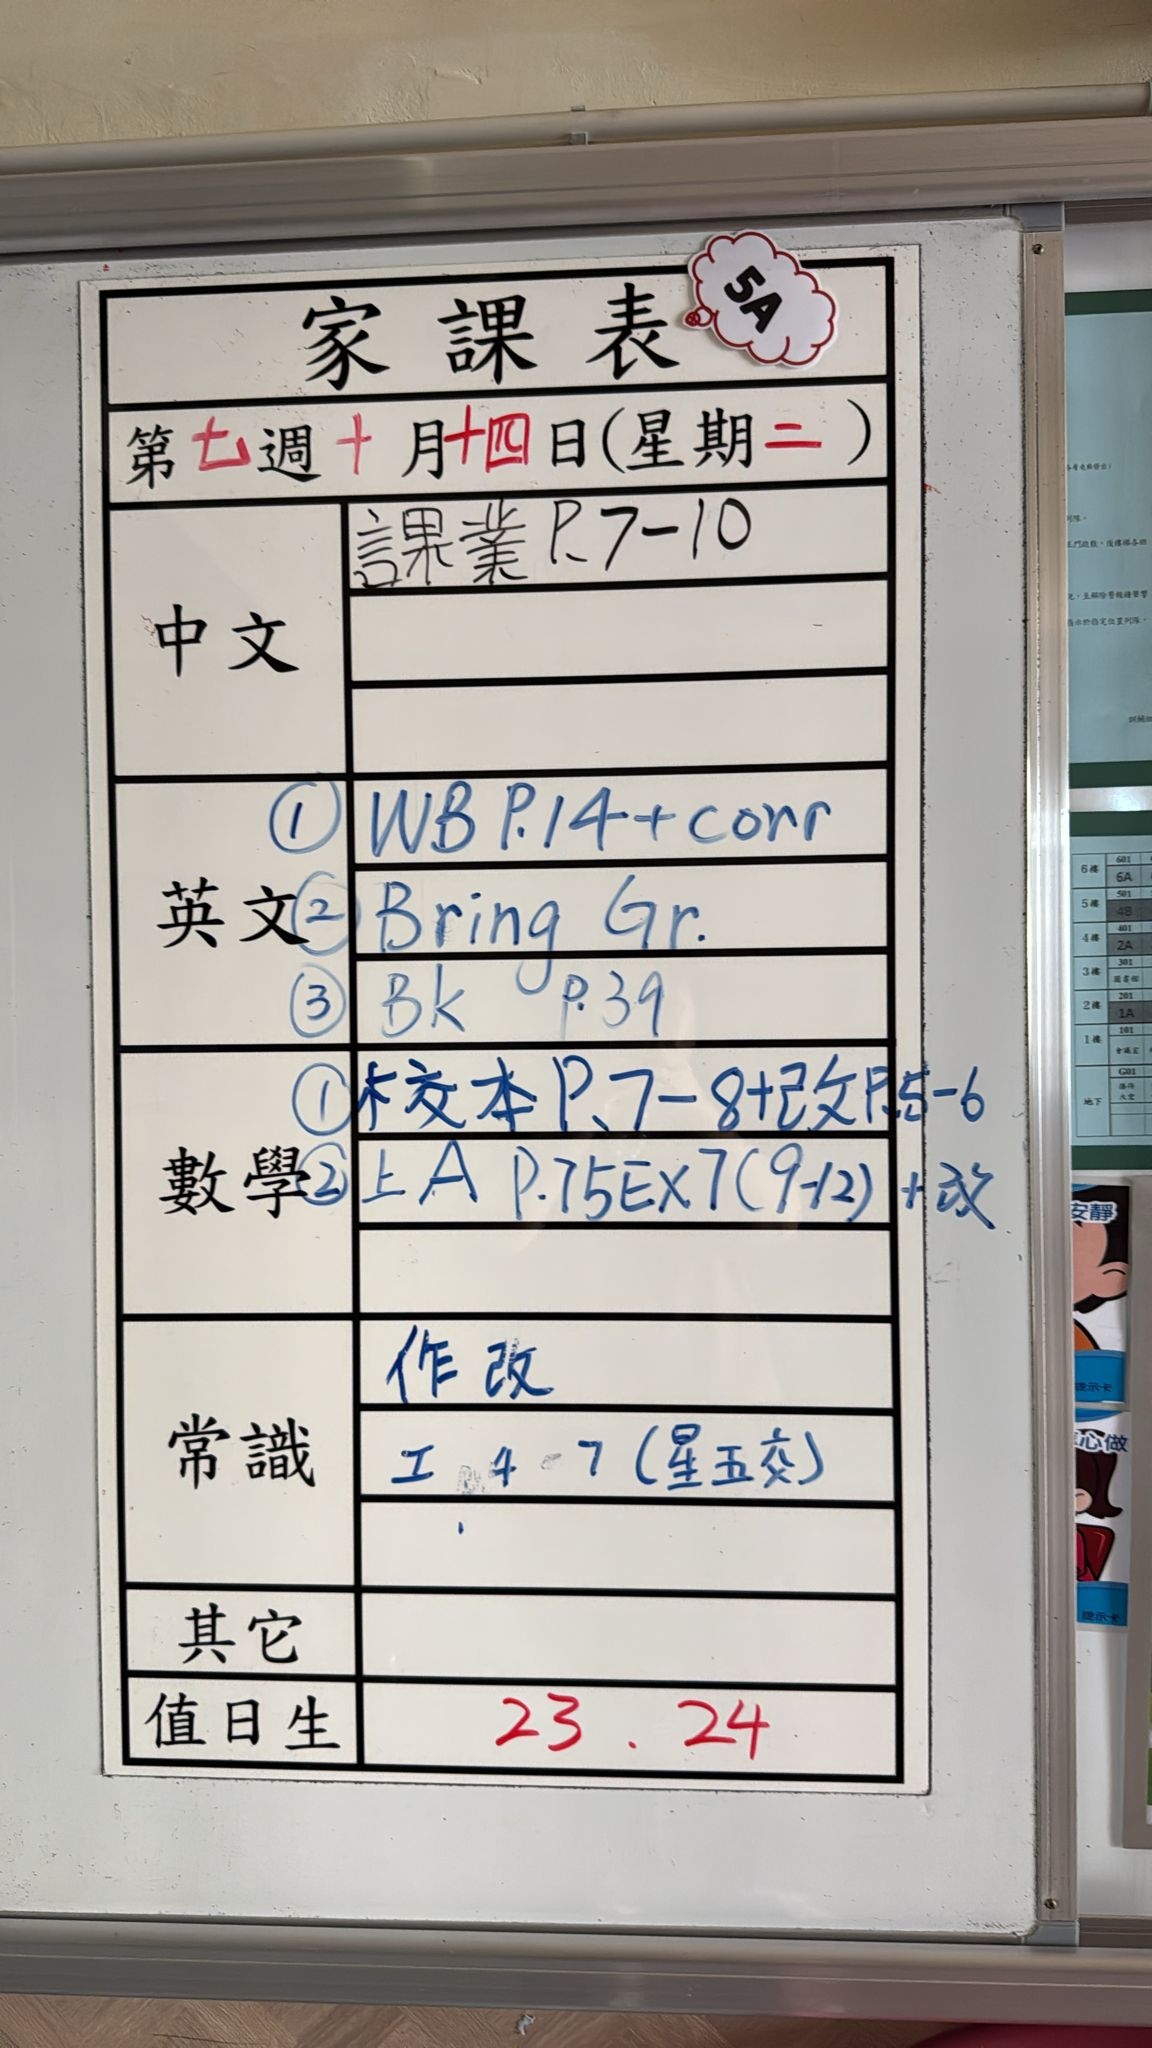 5A
家課表
第七週十月十四日(星期二)
中文
課業 P.7-10
英文
① WB P.14 + corr
② Bring Gr.
③ Bk P.39
數學
① 校本 P.7-8+改 P.5-6
② 上A P.75 EX7(9-12) +改
常識
作改
工 4-7 (星五交)
其它
值日生
23 . 24
6樓
601
6A
5樓
501
4B
4樓
401
2A
3樓
301
圖書館
2樓
201
1A
1樓
101
會議室
地下
G01
安靜
提示卡
心做
提示卡